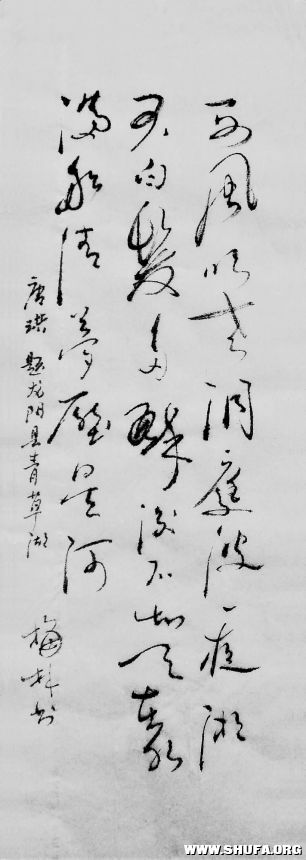 西风吹老洞庭波一夜湘
君白髮多醉后不知天在水
满船清夢壓星河
唐珙 题龙阳县青草湖
梅林书
WWW.SHUFA.ORG